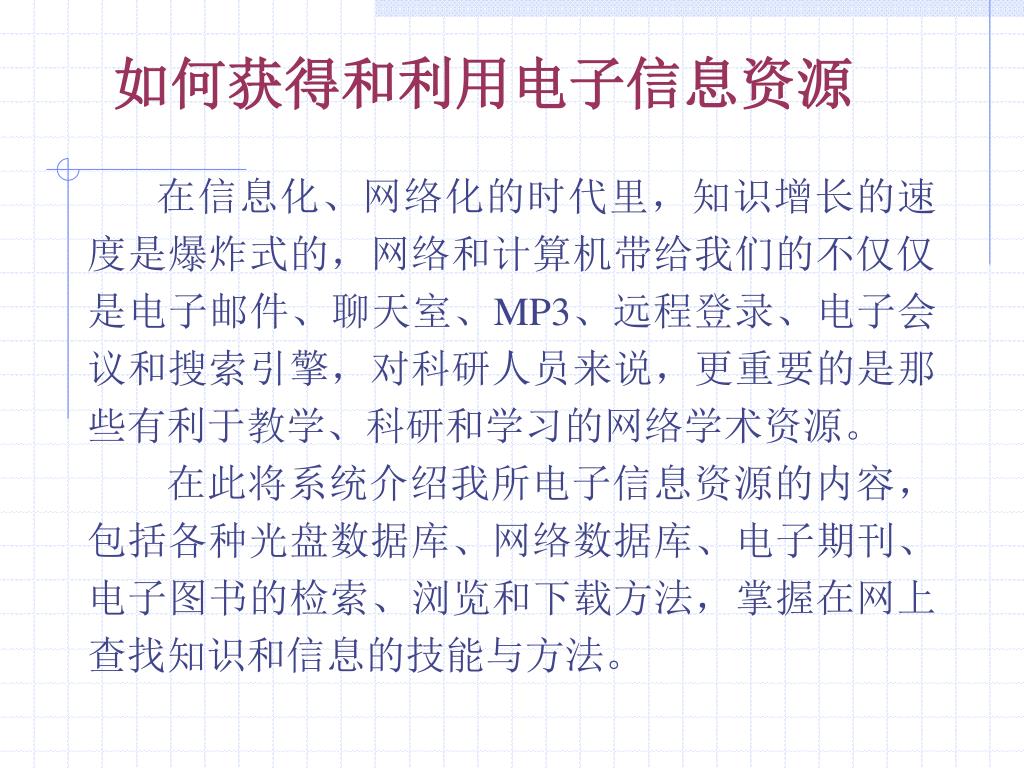 如何获得和利用电子信息资源
在信息化、网络化的时代里，知识增长的速
度是爆炸式的，网络和计算机带给我们的不仅仅
是电子邮件、聊天室、MP3、远程登录、电子会
议和搜索引擎，对科研人员来说，更重要的是那
些有利于教学、科研和学习的网络学术资源。
在此将系统介绍我所电子信息资源的内容，
包括各种光盘数据库、网络数据库、电子期刊、
电子图书的检索、浏览和下载方法，掌握在网上
查找知识和信息的技能与方法。